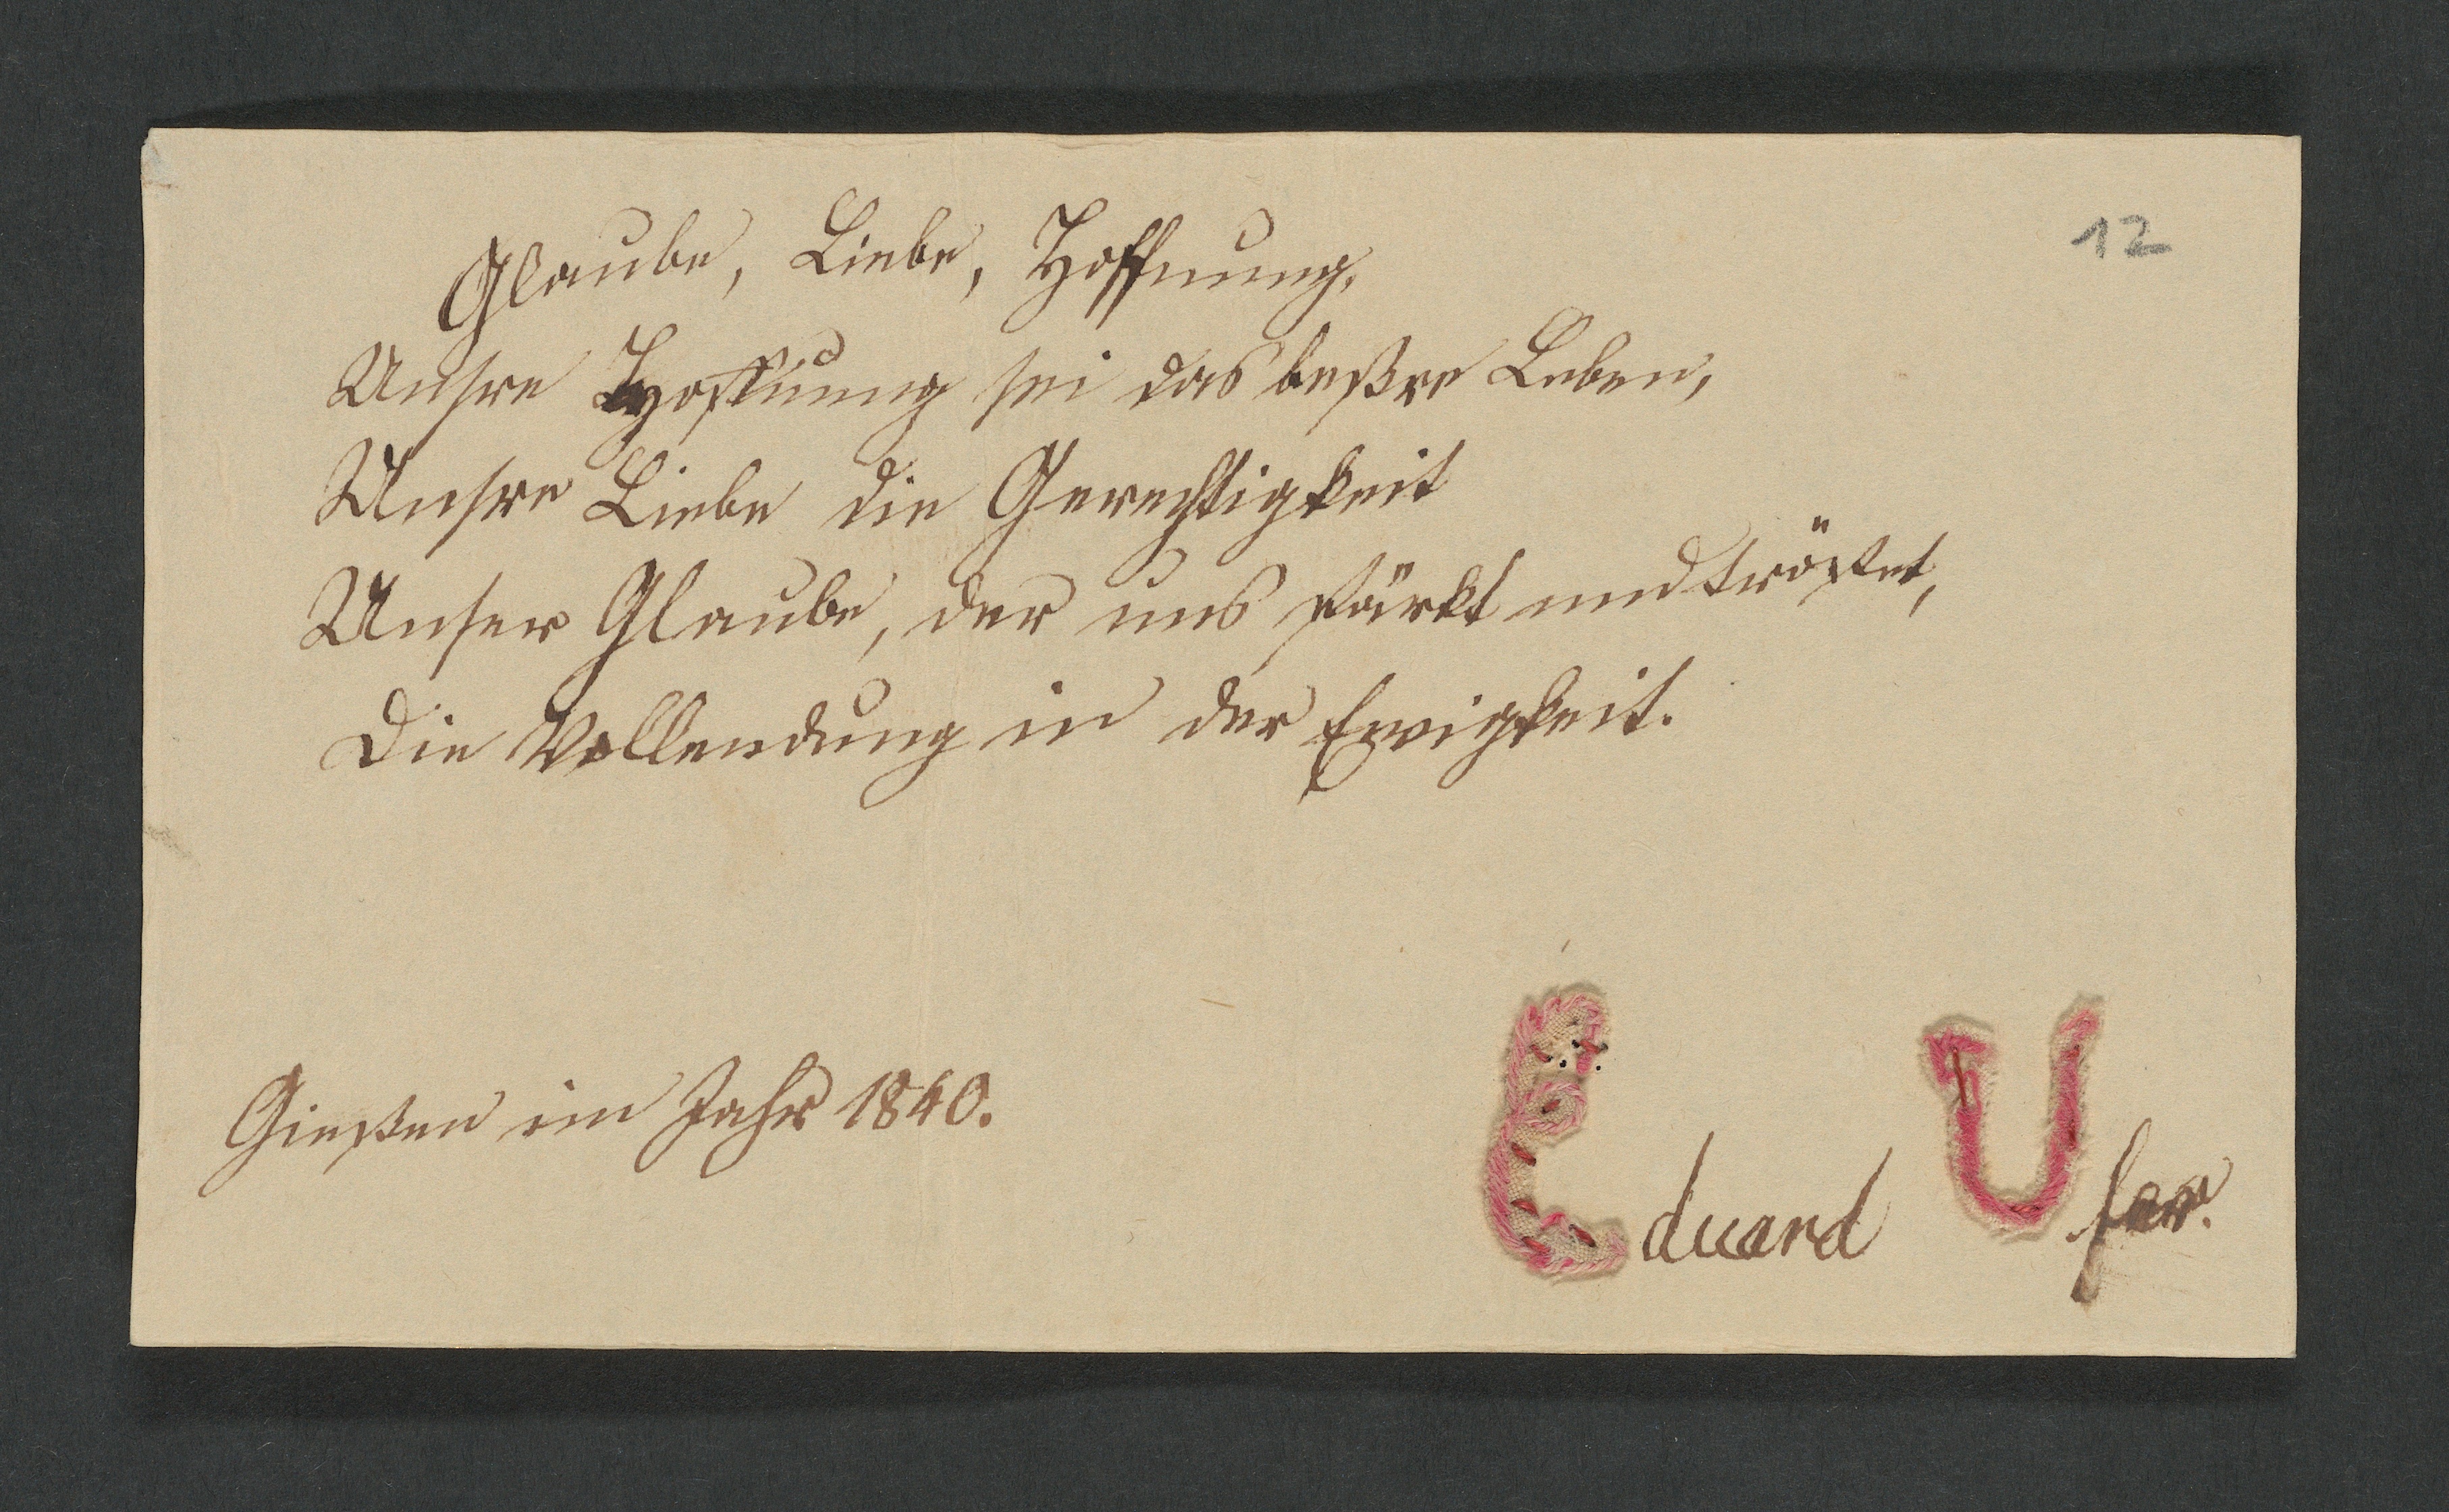 12
Glaube, Liebe, Hoffnung.
Unsre Hoffnung sei das beßre Leben,
Unsre Liebe die Gerechtigkeit
Unser Glaube, der uns stärkt und tröstet,
Die Vollendung in der Ewigkeit.
Gießen im Jahr 1840.
Eduard Ufer.